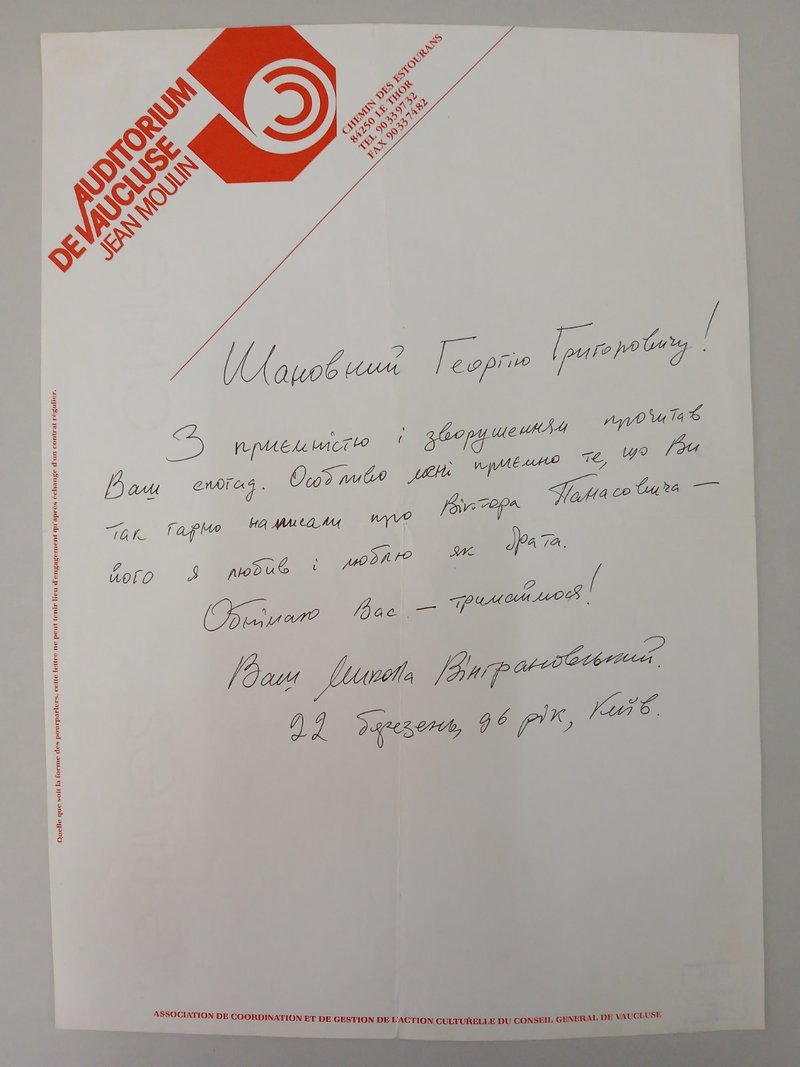 AUDITORIUM
DE VAUCLUSE
JEAN MOULIN
CHEMIN DES ESTOURANS
84250 LE THOR
TEL 90339732
FAX 90337482
Шановний Георгію Григоровичу!
З приємністю і зворушенням прочитав
Ваш спогад. Особливо мені приємно те, що Ви
так гарно написали про Віктора Панасовича —
його я любив і люблю як брата.
Обнімаю Вас — тримаймося!
Ваш Микола Вінграновський.
22 березень, 96 рік, Київ.
Quelle que soit la forme des pourparlers, cette lettre ne peut tenir lieu d'engagement qu'après échange d'un contrat régulier.
ASSOCIATION DE COORDINATION ET DE GESTION DE L'ACTION CULTURELLE DU CONSEIL GENERAL DE VAUCLUSE